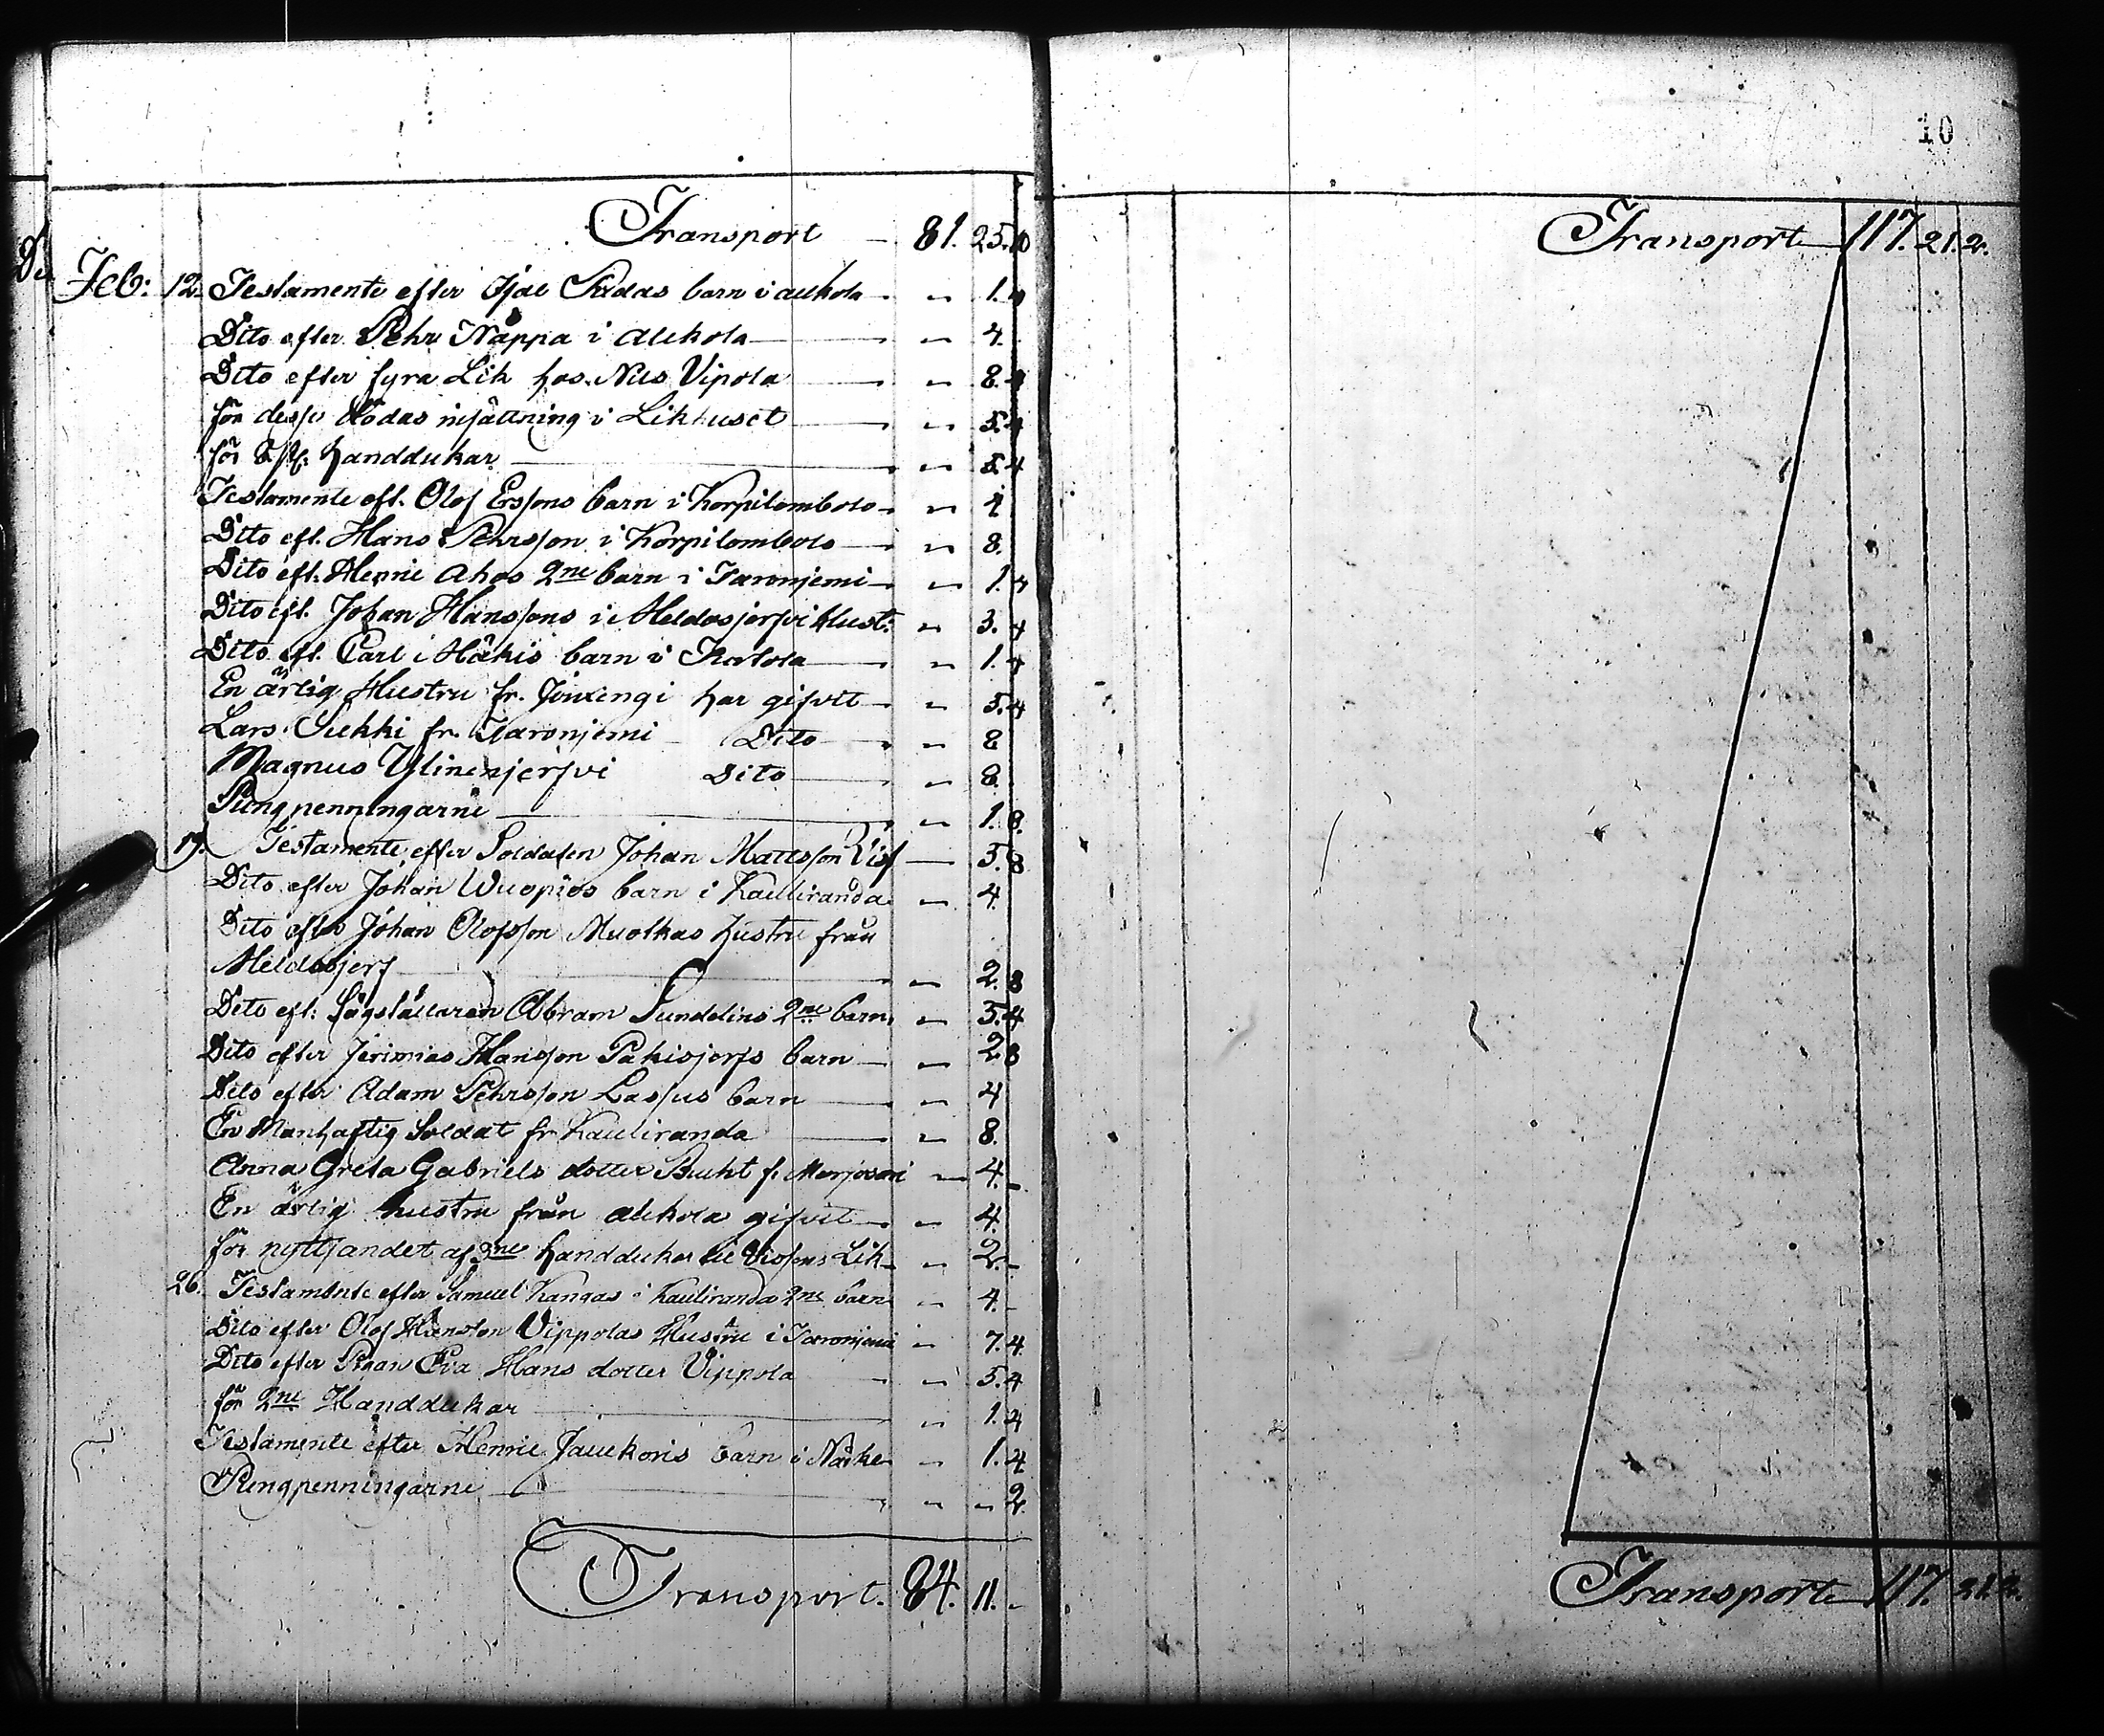 Transport — 81. 25. 10
Feb: 12. Testamente efter barn i alkola — " 1. 4
Dito efter Pehr Nåppa i Alkola — " 4.
Dito efter fyra Lik hos Nils Vipola — " 8.
för desse dödas insättning i Likhuset — " 5. 4
för Handdukar — " 5. 4
Testamente eft. Olof Erssons barn i Korpilombolo — " 4
Dito eft. Hans Pehrsson i Korpilombolo — " 8.
Dito eft. Henric Ahos 2ne barn i Juoronjemi — " 1. 4
Dito eft. Johan Hanssons i Meldosjerfvi Hust: " 3. 4
Dito eft. Carl i Häkis barn i — " 1. 4
En ärlig Hustru fr. Jouxengi har gifvit — " 5. 4
Lars Sukki fr. Juoronjemi Dito — " 8
Magnus Ylinenjerfvi Dito — " 8.
Pungpenningarne — " 1. 8.
19. Testamente efter Soldaten Johan Mattsson Vis — 5. 8
Dito efter Johan Wuopios barn i Kauliranda " 4.
Dito efter Johan Olofsson Muotkas hustru från
Meldosjerf — " 2. 8
Dito eft: Sågställaren Abram Sundelins 2ne barn, " 5. 4
Dito efter Jerimias Hansson Pakisjerfs barn — " 2 8
Dito efter Adam Pehrsson Lassus barn — " 4
En Manhaftig Soldat fr Kauliranda — " 8.
Anna Greta Gabriels dotter Bucht fr Marjosari " 4. -
En ärlig hustru från alkola gifvit — " 4.
för nyttjandet af 2ne handdukar til Vissens Lik " 2. -
26. Testamente efter Samuel Kangas i Kauliranda 2ne barn " 4. -
Dito efter Olof Hansson Vippolas Hustru i Juoronjemi " 7. 4
Dito efter Pigan Eva Hans dotter Vippola — " 5. 4
för 2ne Handdukar — " 1. 4
Testamente efter Henric Jauckoris barn i Närke " 1. 4
Pungpenningarne — " " 2.
Transport. 84. 11. -
10
Transport 117. 21. 2.
Transport 117. 21. 2.